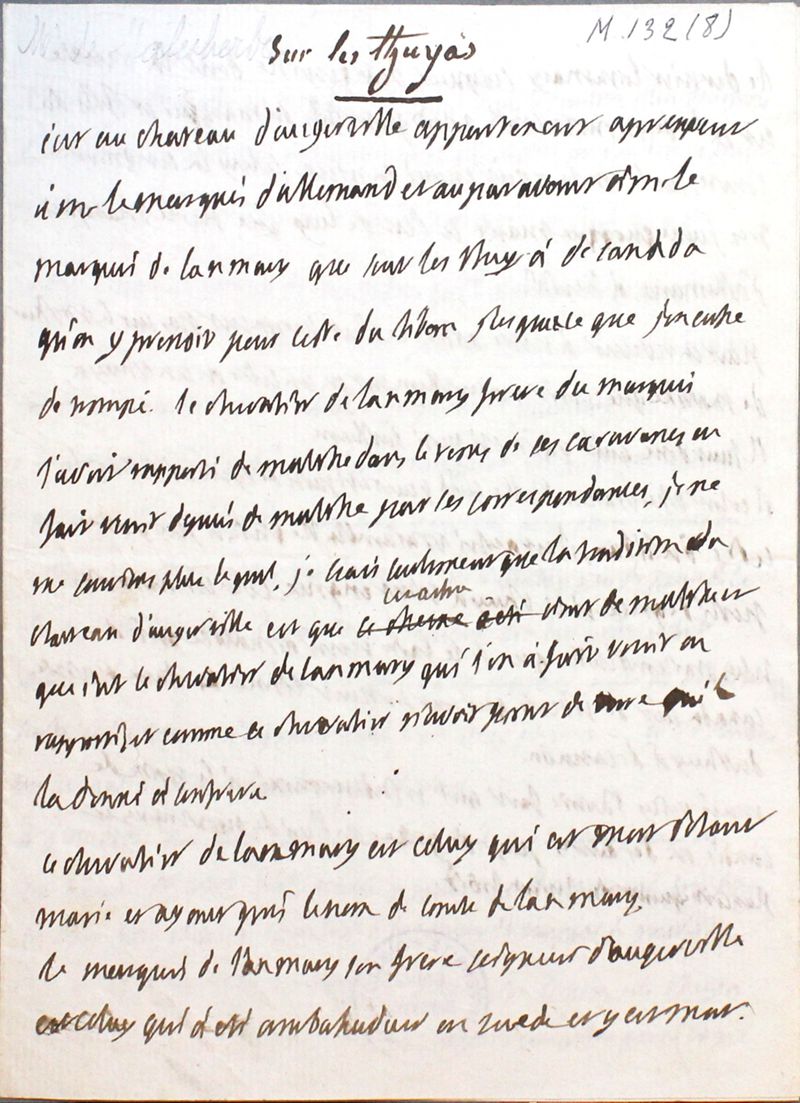 M. 132 (8)
Sur les thuyas
c'est au chateau d'augerville appartenant apresent
à mr le marquis d'allemand et auparavant à mr le
marquis de lanmary que sur les thuya de canada
qu'on y prenoit pour celui du liban
le chevalier de lanmary frere du marquis
l'avoit rapporté de malthe dans le tems de ses caravanes ou
fait venir depuis de malthe par ses correspondances, je ne
me souviens plus lequel, je scais seulement que la tradition du
chateau d'augerville est que ce cedre vient de malthe et
que c'est le chevalier de lanmary qui l'en a fait venir ou
rapporté et comme ce chevalier n'avoit point de terre qu'il
l'a donné à son frere
ce chevalier de lanmary est celuy qui est mort étant
marié et ayant pris le nom de comte de lanmary
le marquis de lanmary son frere seigneur d'augerville
est celuy qui a eté ambassadeur en suede et y est mort.